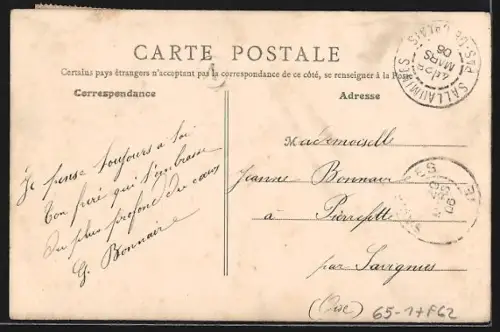 CARTE POSTALE
Certains pays étrangers n'acceptent pas la correspondance de ce côté, se renseigner à la Poste
Correspondance
Adresse
Je pense toujours a toi
Ton père qui t'embrasse
du plus profond du cœur
G. Bonnaire
Mademoiselle
Jeanne Bonnaire
à Pierrefitte
par Savignies
(Oise)
65-17F62
SALLAUMINES
PAS-DE-CALAIS
MARS
06